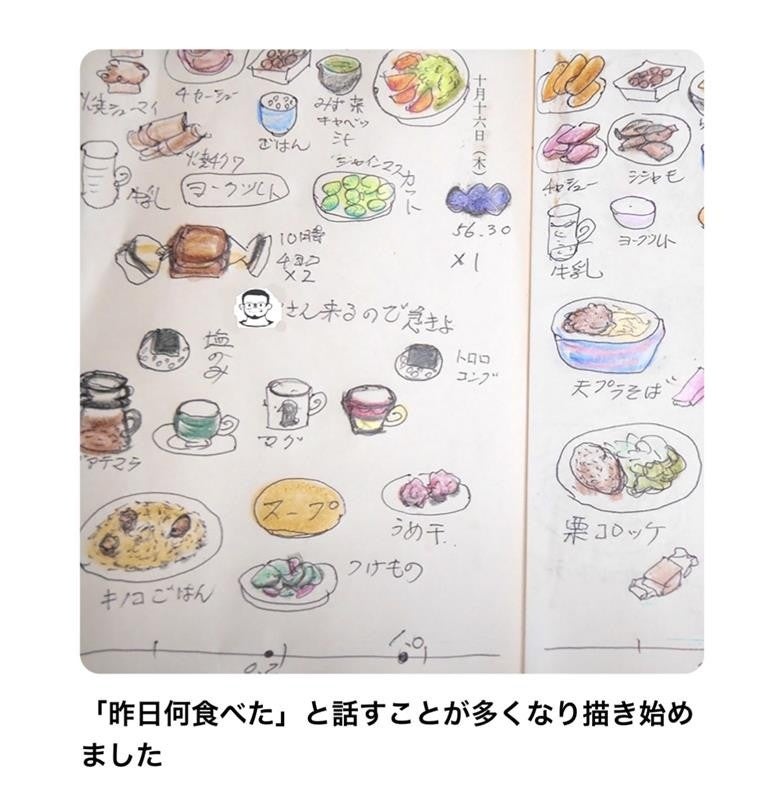 焼シューマイ
チャーシュー
ごはん
みず菜
キャベツ
汁
十月十六日(木)
牛乳
焼チクワ
ヨーグルト
シャインマスカット
56.30
×1
10時
×2
さん来るので急きよ
塩のみ
トロロ
コンブ
マグ
キノコごはん
スープ
うめ干
つけもの
0.2
1.0
チャシュー
シシャモ
牛乳
ヨーグルト
天プラそば
栗コロッケ
「昨日何食べた」と話すことが多くなり描き始め
ました